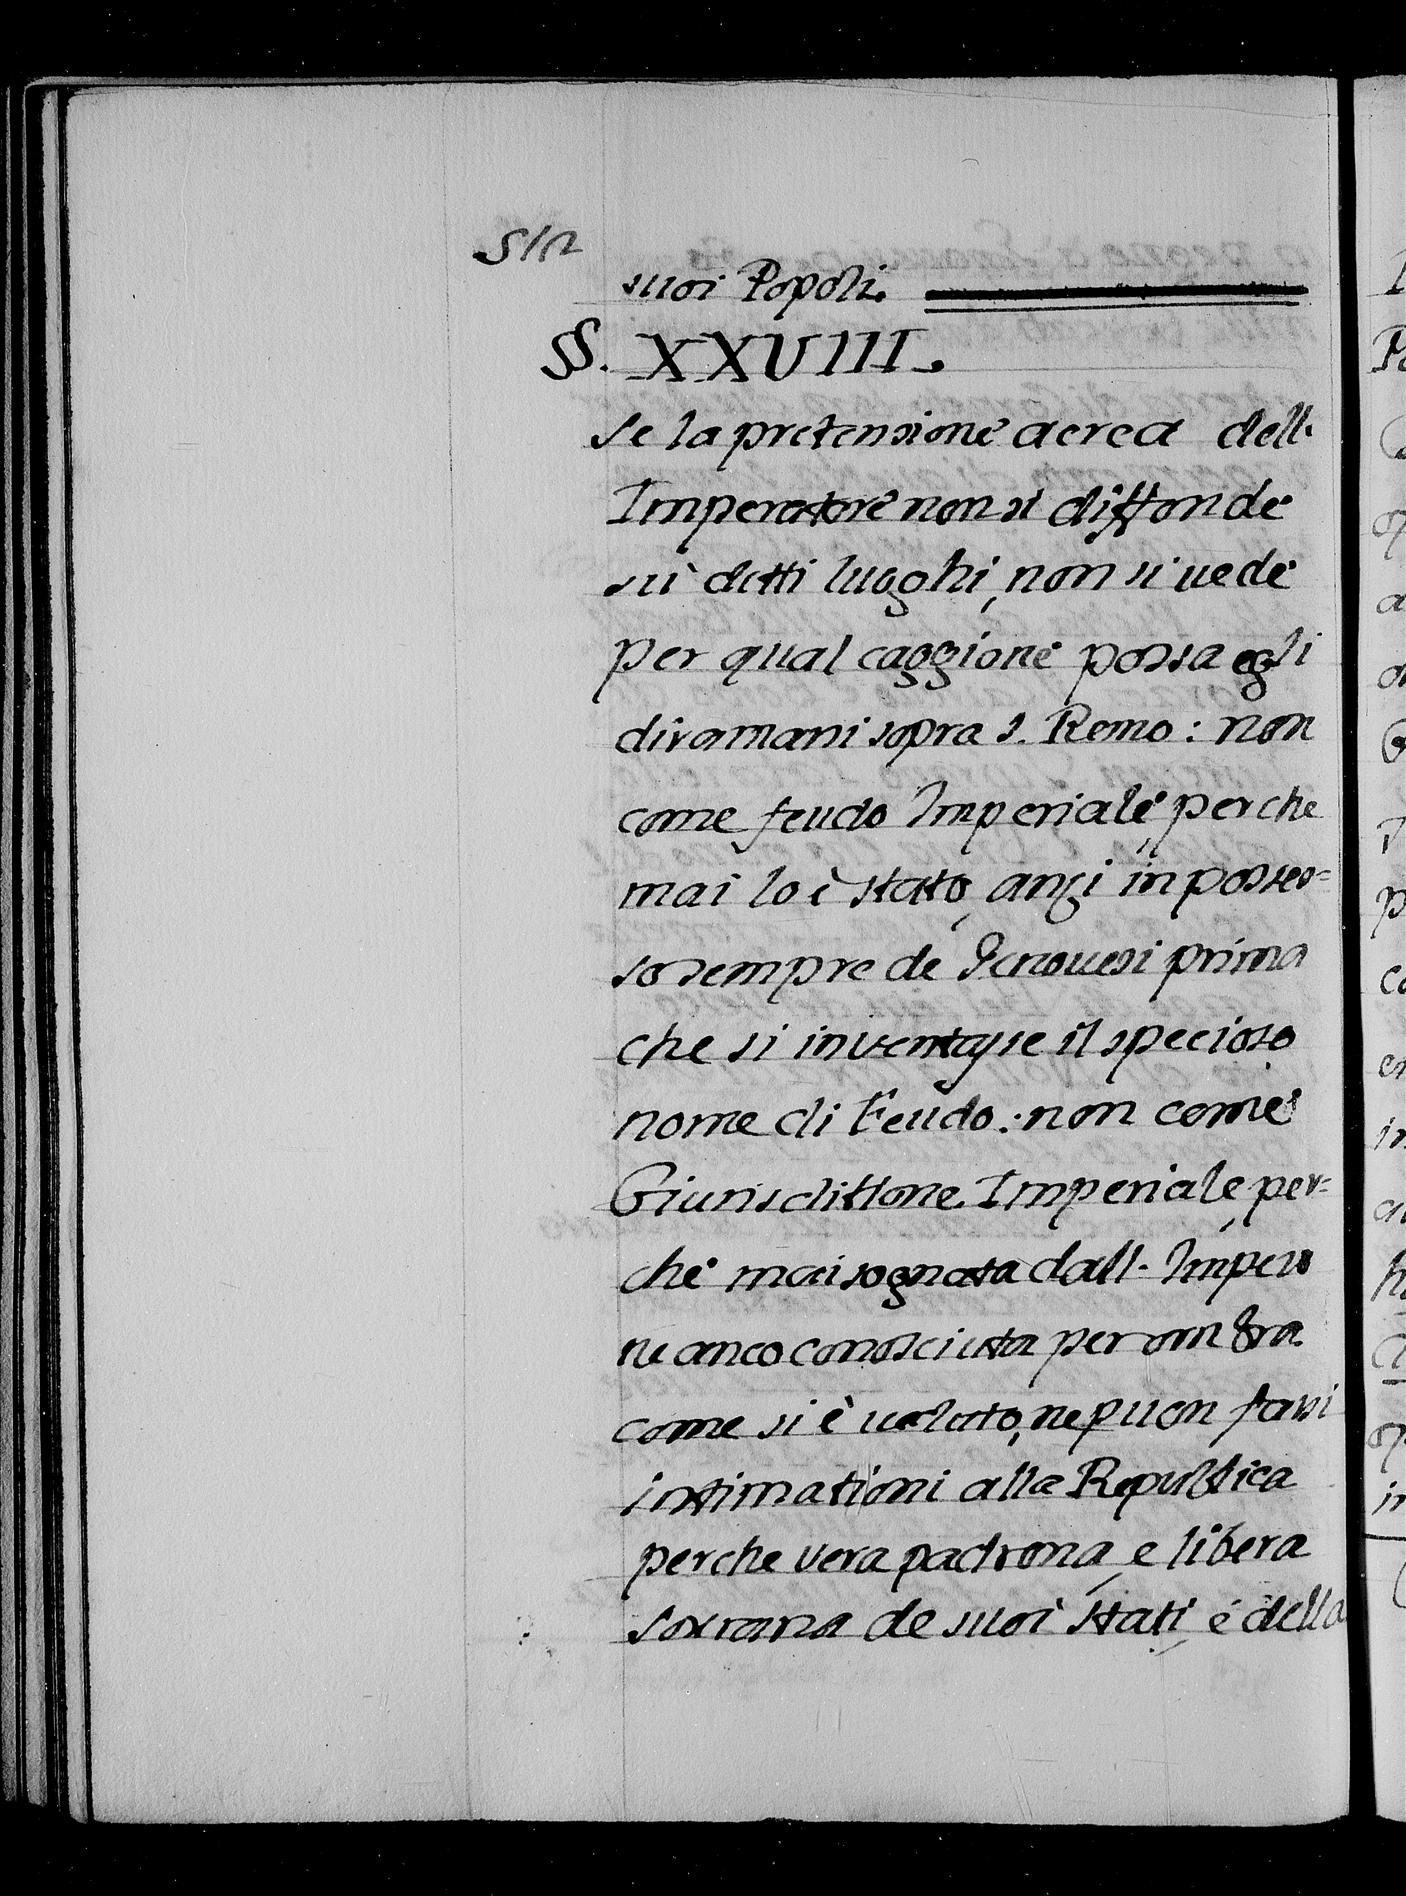 512
suoi Popoli.
§§. XXVIII.
Se la pretensione aerea dell'
Imperatore non si diffonde
sù detti luoghi, non si vede
per qual caggione possa egli
diramarsi sopra S. Remo: non
come feudo Imperiale, perche
mai lo è stato, anzi in posses=
so sempre de Genovesi prima
che si inventasse il specioso
nome di Feudo: non come
Giurisdittione Imperiale, per=
che mai sognata dall' Impero
ne anco conosciuta per ombra
come si è valato, ne puon farsi
intimationi alla Republica
perche vera padrona, e libera
sovrana de suoi stati, é della